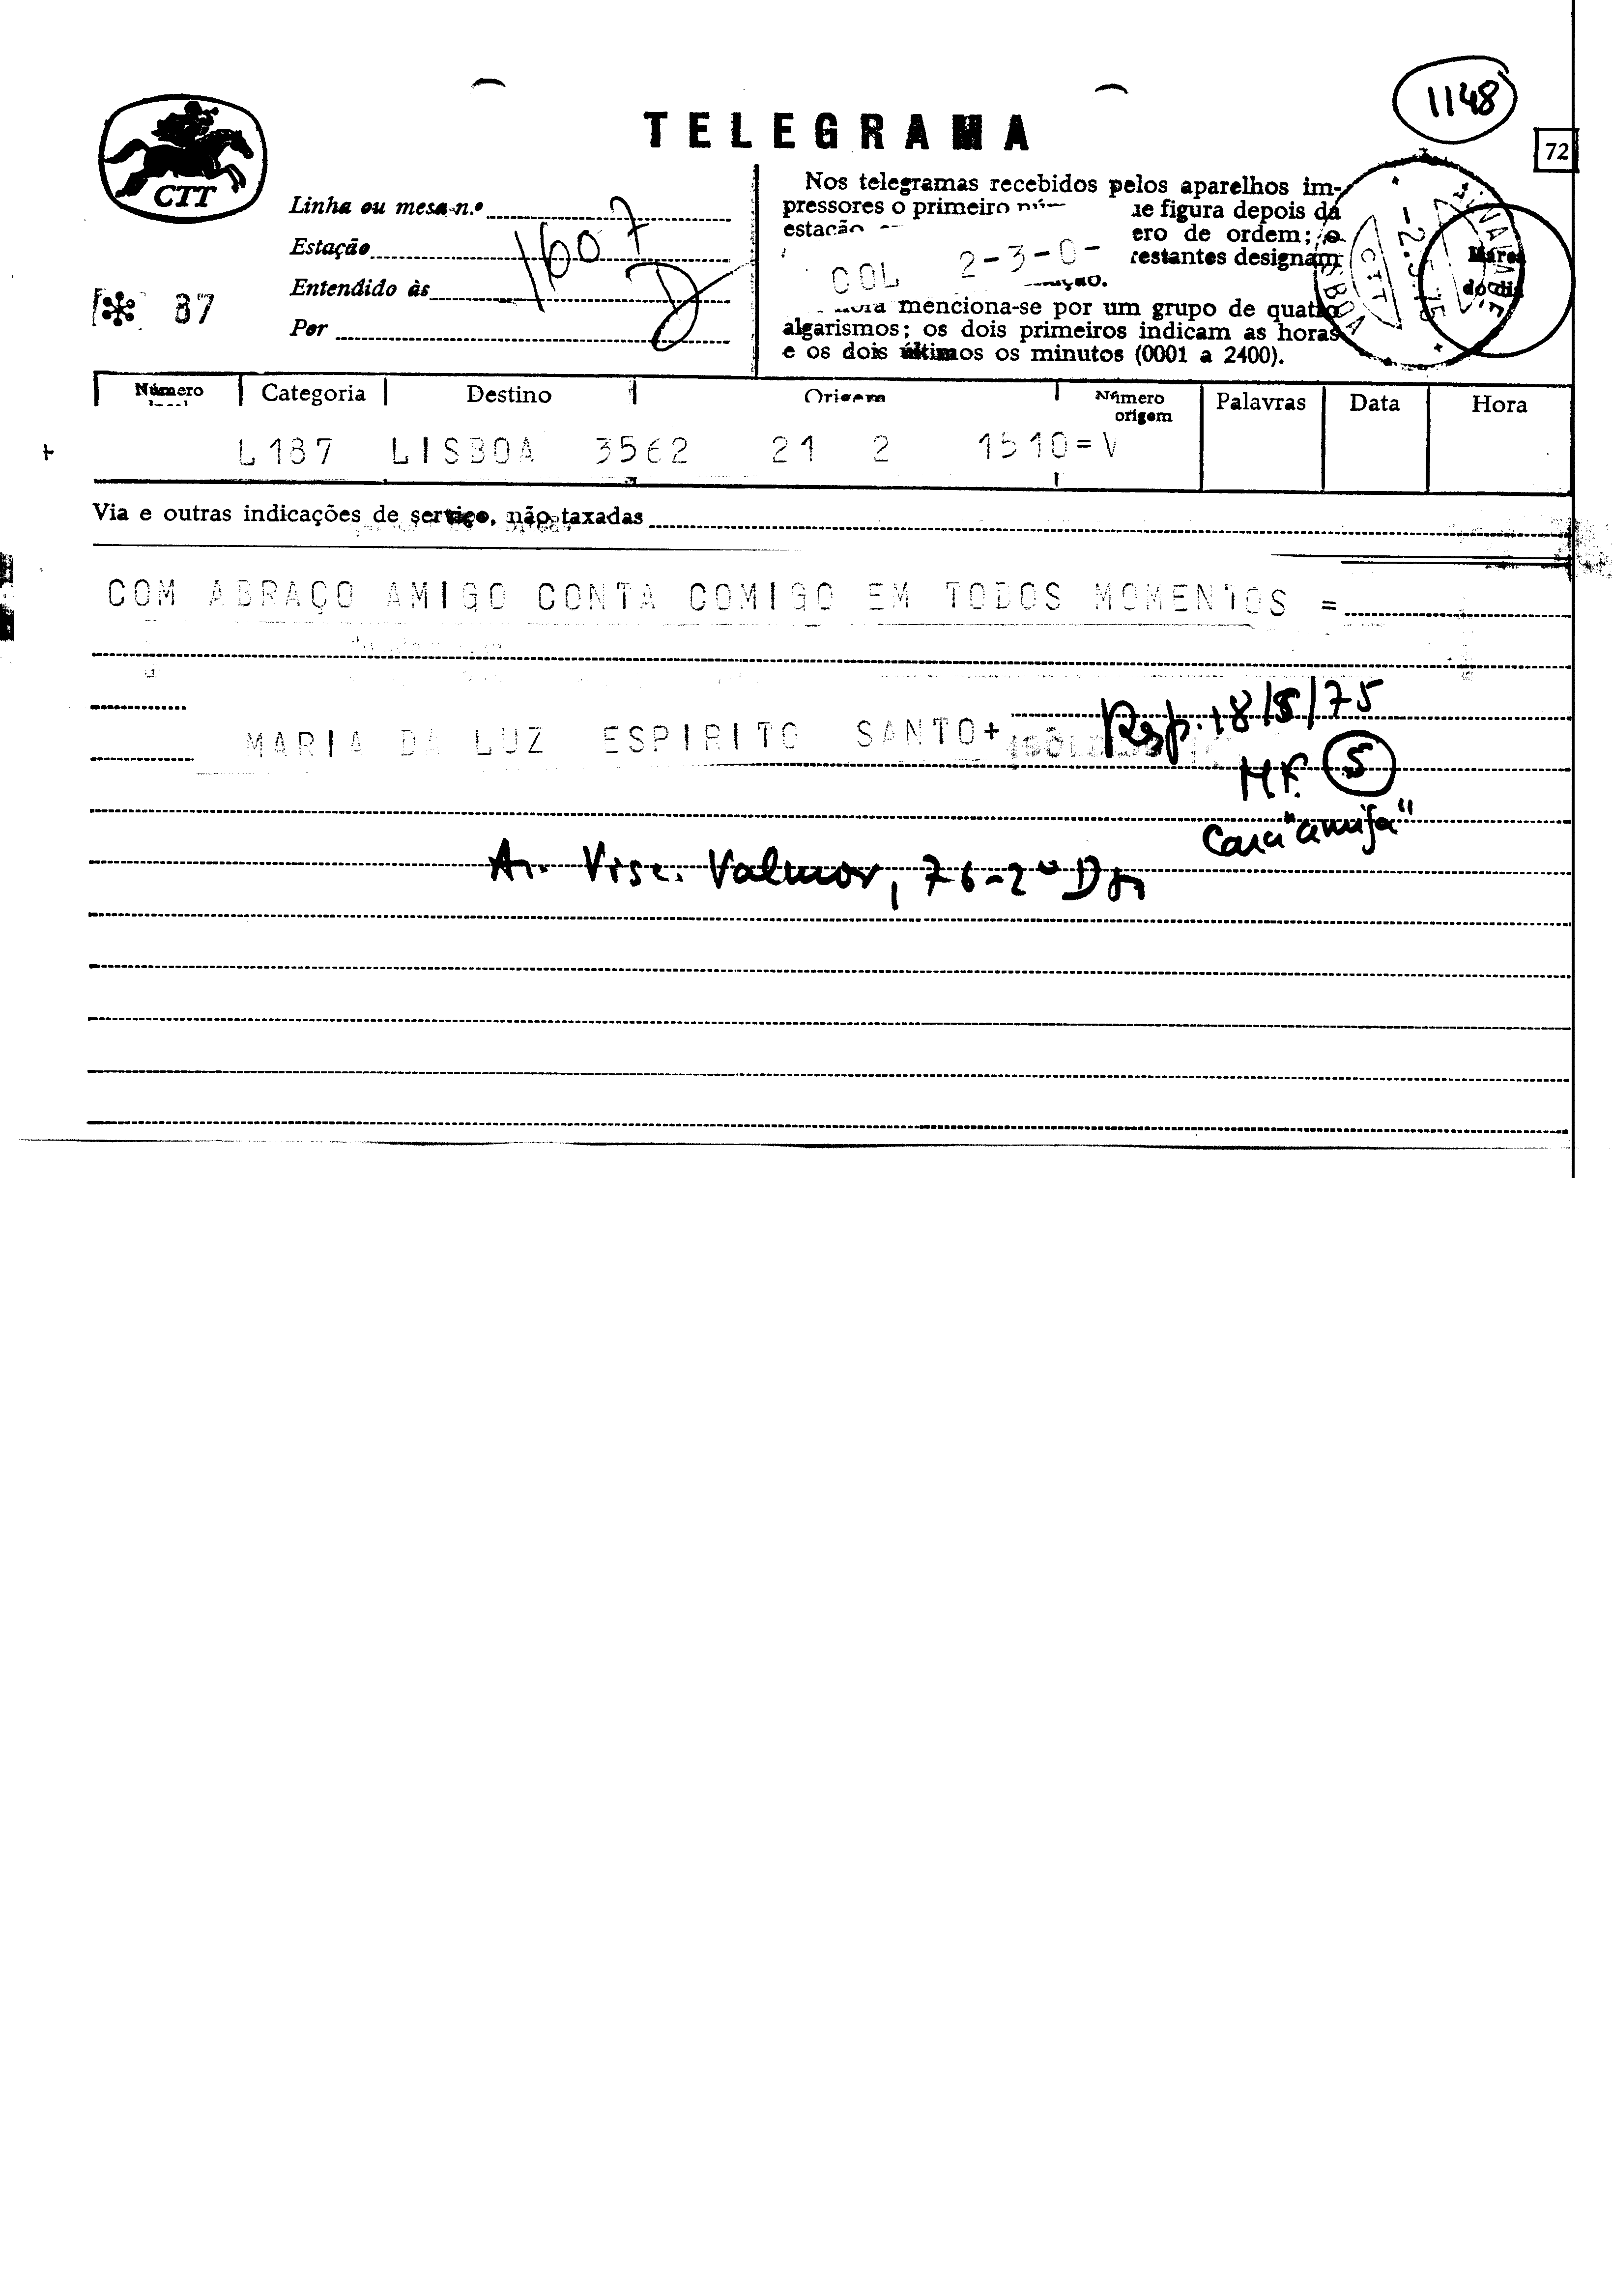 1148
TELEGRAMA
72
CTT
Linha ou mesa n.º
Estação
1607
Entendido às
Por
87
Nos telegramas recebidos pelos aparelhos im-
pressores o primeiro ue figura depois da
estação ero de ordem; o
restantes designam
COL 2-3-0-
menciona-se por um grupo de quatro
algarismos; os dois primeiros indicam as horas
e os dois últimos os minutos (0001 a 2400).
CTT
Número Categoria Destino Origem Número origem Palavras Data Hora
L187 LISBOA 3562 21 2 1510=V
Via e outras indicações de serviço, não taxadas
COM ABRAÇO AMIGO CONTA COMIGO EM TODOS MOMENTOS =
MARIA DA LUZ ESPIRITO SANTO+
Resp. 18/5/75
M.F. 5
Cara "amiga"
Av. Visc. Valmor, 76-2º Dto